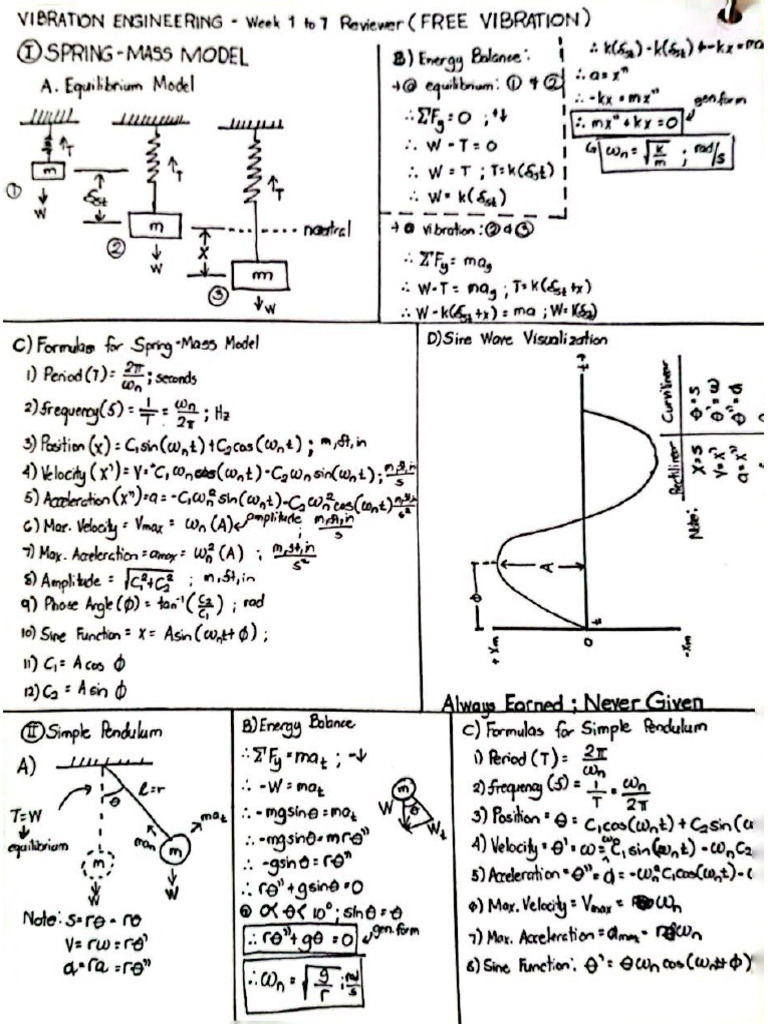 VIBRATION ENGINEERING - Week 1 to 7 Reviewer (FREE VIBRATION)
Ⓘ SPRING-MASS MODEL
A. Equilibrium Model
T
m
①
W
δst
T
m
②
W
x
neutral
T
m
③
W
B) Energy Balance:
→@ equilibrium: ① & ②
∴ ΣFy = 0 ; +↓
∴ W - T = 0
∴ W = T ; T = k(δst)
∴ W = k(δst)
→@ vibration: ② & ③
∴ ΣFy = may
∴ W - T = may ; T = k(δst+x)
∴ W - k(δst+x) = ma ; W = k(δst)
∴ k(δst) - k(δst) - kx = ma
∴ a = x"
∴ -kx = mx"
∴ mx" + kx = 0 gen. form
ωn = √k/m ; rad/s
C) Formulas for Spring-Mass Model
1) Period (T) = 2π/ωn ; seconds
2) frequency (f) = 1/T = ωn/2π ; Hz
3) Position (x) = C1 sin(ωnt) + C2 cos(ωnt) ; m, ft, in
4) Velocity (x') = V = C1 ωn cos(ωnt) - C2 ωn sin(ωnt) ; m, ft, in/s
5) Acceleration (x") = a = -C1 ωn² sin(ωnt) - C2 ωn² cos(ωnt) m, ft, in/s²
6) Max. Velocity = Vmax = ωn (A) ← amplitude ; m, ft, in/s
7) Max. Acceleration = amax = ωn² (A) ; m, ft, in/s²
8) Amplitude = √C1² + C2² ; m, ft, in
9) Phase Angle (ϕ) = tan⁻¹ (C2/C1) ; rad
10) Sine Function = x = A sin(ωnt + ϕ) ;
11) C1 = A cos ϕ
12) C2 = A sin ϕ
D) Sine Wave Visualization
t
A
ϕ
+ Xm
0
- Xm
Note:
Rectilinear
Curvilinear
x = s
θ = s
v = x'
θ' = ω
a = x"
θ" = α
Always Earned ; Never Given
Ⓘ Ⓘ Simple Pendulum
A)
l = r
θ
T = W
equilibrium
m
W
man
mat
m
W
Note: s = rθ = rθ
v = rω = rθ'
a = rα = rθ"
B) Energy Balance
∴ ΣFy = mat ; -↓
∴ -W = mat
∴ -mg sinθ = mat
∴ -mg sinθ = mrθ"
∴ -g sinθ = rθ"
∴ rθ" + g sinθ = 0
@ 0<θ<10° ; sinθ = θ
∴ rθ" + gθ = 0 gen. form
∴ ωn = √g/r ; rad/s
m
θ
W
Wt
C) Formulas for Simple Pendulum
1) Period (T) = 2π/ωn
2) frequency (f) = 1/T = ωn/2π
3) Position = θ = C1 cos(ωnt) + C2 sin(
4) Velocity = θ' = ω = C1 sin(ωnt) - ωn C2
5) Acceleration = θ" = α = -ωn² C1 cos(ωnt) -
6) Max. Velocity = Vmax = ωn
7) Max. Acceleration = amax = ωn
8) Sine Function: θ' = θωn cos(ωnt + ϕ)